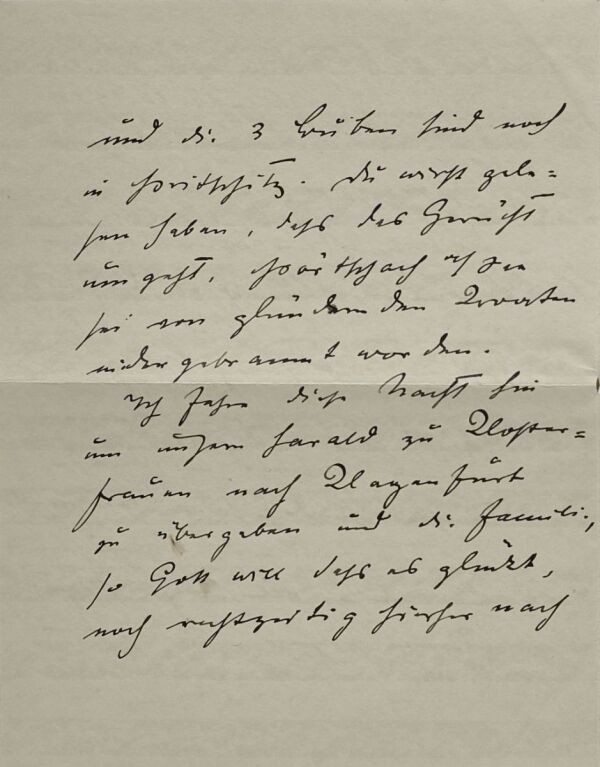 und die 3 Buben sind noch
in Pöritschitz. Du wirst gele-
sen haben, dass das Gerücht
umgeht, Pörtschach a/ See
sei von plündernden Kroaten
niedergebrannt worden.
Ich fahre diese Nacht hin
um unsern Harald zu Kloster=
frauen nach Klagenfurt
zu übergeben und die Familie,
so Gott will dass es glückt,
noch rechtzeitig hierher nach